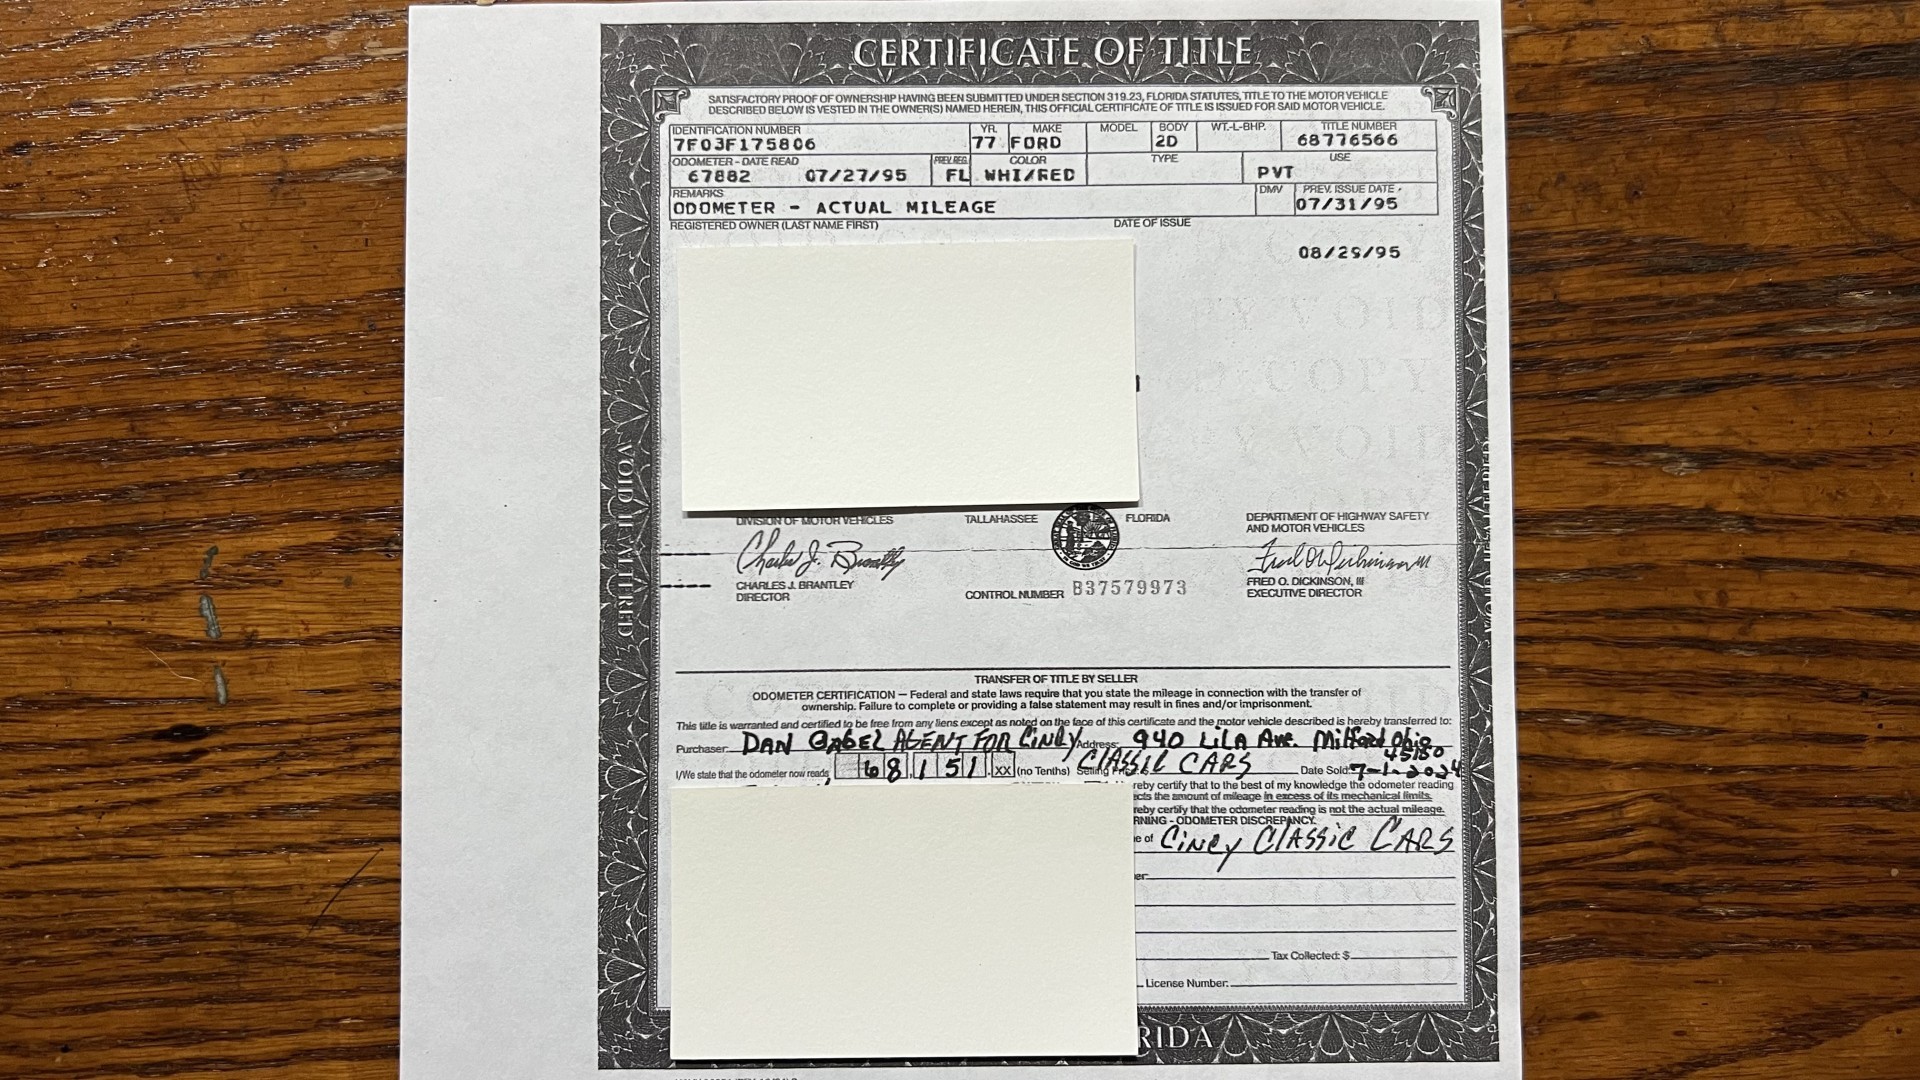 CERTIFICATE OF TITLE
SATISFACTORY PROOF OF OWNERSHIP HAVING BEEN SUBMITTED UNDER SECTION 319.23, FLORIDA STATUTES, TITLE TO THE MOTOR VEHICLE
DESCRIBED BELOW IS VESTED IN THE OWNER(S) NAMED HEREIN, THIS OFFICIAL CERTIFICATE OF TITLE IS ISSUED FOR SAID MOTOR VEHICLE.
IDENTIFICATION NUMBER YR. MAKE MODEL BODY WT.-L-BHP. TITLE NUMBER
7F03F175806 77 FORD 2D 68776566
ODOMETER - DATE READ PREV. REG. COLOR TYPE USE
67882 07/27/95 FL WHI/RED PVT
REMARKS DMV PREV. ISSUE DATE
ODOMETER - ACTUAL MILEAGE 07/31/95
REGISTERED OWNER (LAST NAME FIRST) DATE OF ISSUE
08/29/95
VOID
COPY
VOID IF ALTERED
DIVISION OF MOTOR VEHICLES TALLAHASSEE FLORIDA DEPARTMENT OF HIGHWAY SAFETY
AND MOTOR VEHICLES
Charles J. Brantley Fred O. Dickinson III
CHARLES J. BRANTLEY FRED O. DICKINSON, III
DIRECTOR CONTROL NUMBER B37579973 EXECUTIVE DIRECTOR
TRANSFER OF TITLE BY SELLER
ODOMETER CERTIFICATION — Federal and state laws require that you state the mileage in connection with the transfer of
ownership. Failure to complete or providing a false statement may result in fines and/or imprisonment.
This title is warranted and certified to be free from any liens except as noted on the face of this certificate and the motor vehicle described is hereby transferred to:
Purchaser: DAN GABEL AGENT FOR CINCY Address: 940 LILA Ave. Milford Ohio
45150
I/We state that the odometer now reads 68,151.XX (no Tenths) Selling Price: $ CLASSIC CARS Date Sold: 7-1-2024
reby certify that to the best of my knowledge the odometer reading
cts the amount of mileage in excess of its mechanical limits.
reby certify that the odometer reading is not the actual mileage.
RNING - ODOMETER DISCREPANCY.
e of CINCY CLASSIC CARS
er:
Tax Collected: $
License Number:
RIDA